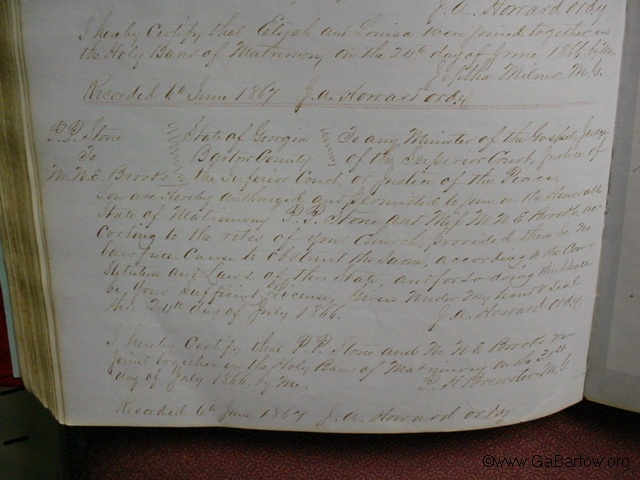 J. A. Howard ordy
I hereby Certify that Elijah and Louisa were joined together in
the Holy Bans of Matrimony on the 24th day of June 1866 by me
Milner M. G.
Recorded 6th June 1867 J. A. Howard ordy
P. P. Stone State of Georgia To any Minister of the Gospel, Judge
To Bartow County of the Superior Court, Justice of
M. N. E. Brooks the Inferior Court, or Justice of the Peace,
You are Hereby authorized and permitted to join in the Honorable
State of Matrimony P. P. Stone and Miss M N E Brooks ac
cording to the rites of your Church, provided there be no
lawful Cause to obstruct the Same, according to the Con
stitution and laws of this State, and for so doing this shall
be your Sufficient License, Given under my hand & Seal
this 24th day of July 1866. J. A. Howard ordy
I hereby Certify that P. P. Stone and M. N. E Brooks wer
joined together in the Holy Bans of Matrimony on the
day of July 1866 by me. P. H. Brewster M. G.
Recorded 6th June 1867 J. A. Howard ordy
©www.GaBartow.org